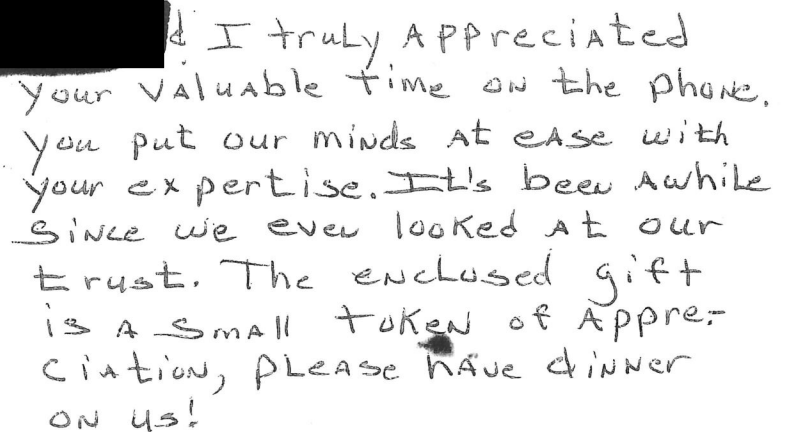 d I truly Appreciated
your valuable time on the phone.
you put our minds at ease with
your expertise. It's been awhile
since we even looked at our
trust. The enclosed gift
is a small token of Appre-
ciation, please have dinner
on us!